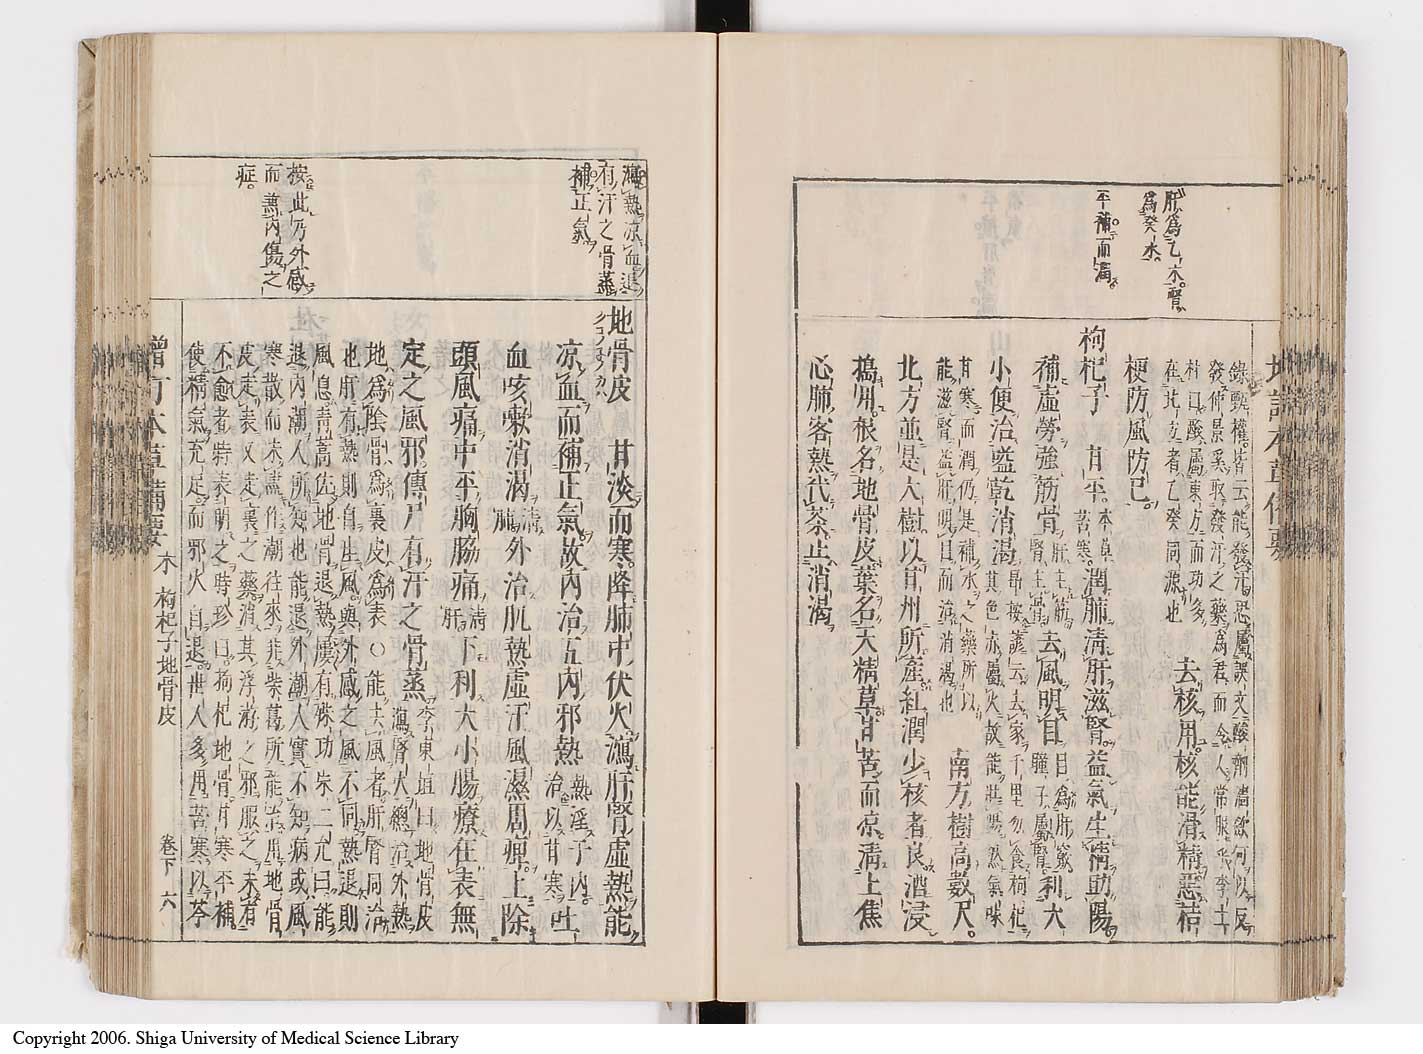 肝爲乙木腎
爲癸水
平補而潤
錄甄權皆云能發汗恐屬誤文酸劑濇斂何以反
發仲景奚取發汗之藥爲君而今人常服乎李士
材曰酸屬東方而功多
在北方者乙癸同源也
去核用核能滑精惡桔
梗防風防己
枸杞子
甘平
本草苦寒
潤肺清肝滋腎益氣生精助陽
補虛勞強筋骨
肝主筋腎主骨
去風明目
目爲肝竅瞳子屬腎
利大
小便治嗌乾消渴
昂按諺云去家千里勿食枸杞
其色赤屬火故能壯陽然氣味
甘寒而潤仍是補水之藥所以
能滋腎益肝明目而治消渴也
南方樹高數尺
北方並是大樹以甘州所産紅潤少核者良酒浸
搗用根名地骨皮葉名天精草苦甘而凉清上焦
心肺客熱代茶止消渴
瀉熱凉血退
有汗之骨蒸
補正氣
按此乃外感
而兼內傷之
症
地骨皮
甘淡而寒降肺中伏火瀉肝腎虛熱能
凉血而補正氣故內治五內邪熱
熱淫于內
治以甘寒
吐
血咳嗽消渴
清肺
外治肌熱虛汗風濕周痹上除
頭風痛中平胸脇痛
清肝
下利大小腸療在表無
定之風邪傳尸有汗之骨蒸
李東垣曰地骨皮
瀉腎火總治外熱
地爲陰骨爲裏皮爲表○能去風者肝腎同治
也肝有熱則自生風與外感之風不同熱退則
風息靑蒿佐地骨退熱屢有殊功朱二允曰能
退內潮人所知也能退外潮人實不知病或風
寒散而未盡作潮往來非柴葛所能治用地骨
皮走表又走裏之藥消其浮游之邪服之未有
不愈者特表明之時珍曰枸杞地骨甘寒平補
使精氣充足而邪火自退世人多用苦寒以芩
增訂本草備要
木
枸杞子地骨皮
卷下
六
Copyright 2006. Shiga University of Medical Science Library